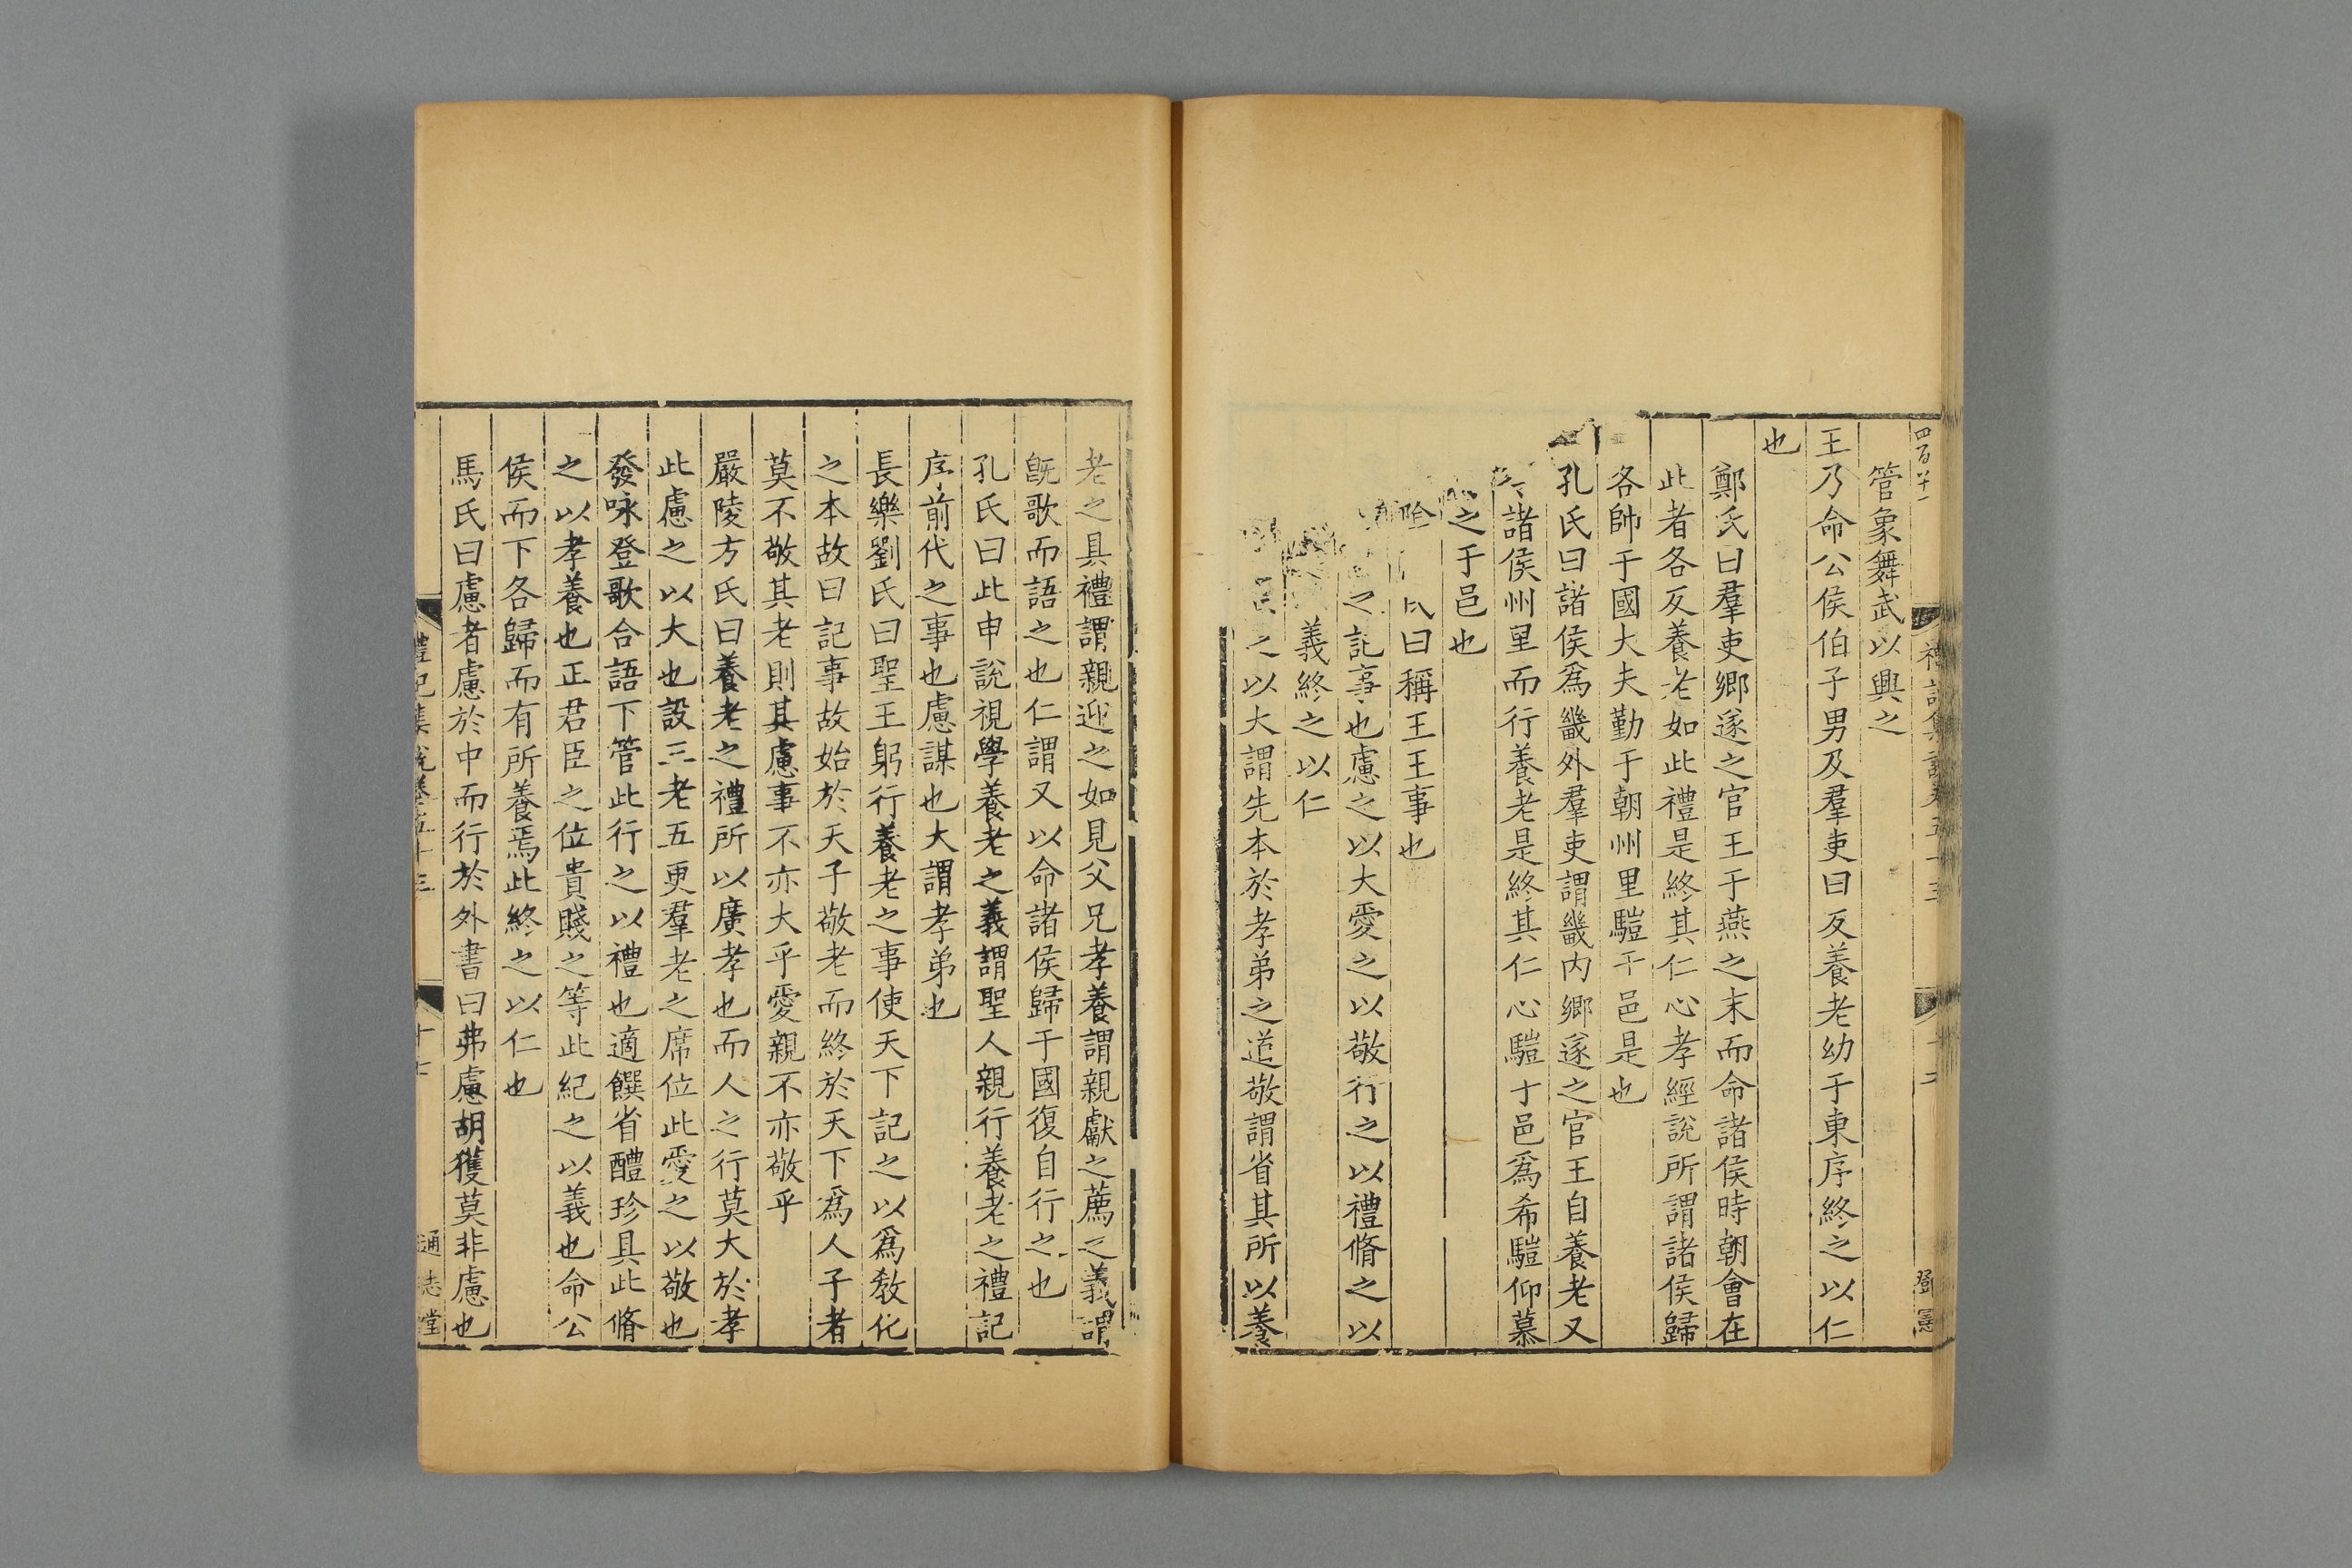 管象舞武以興之
王乃命公侯伯子男及羣吏曰反養老幼于東序終之以仁
也
鄭氏曰羣吏鄉遂之官王于燕之末而命諸侯時朝會在
此者各反養老如此禮是終其仁心孝經說所謂諸侯歸
各帥于國大夫勤于朝州里驖于邑是也
孔氏曰諸侯爲畿外羣吏謂畿内鄉遂之官王自養老又
諸侯州里而行養老是終其仁心驖于邑爲希驖仰慕
之于邑也
曰稱王王事也
之記事也慮之以大愛之以敬行之以禮脩之以
義終之以仁
之以大謂先本於孝弟之道敬謂省其所以養
老之具禮謂親迎之如見父兄孝養謂親獻之薦之義謂
旣歌而語之也仁謂又以命諸侯歸于國復自行之也
孔氏曰此申說視學養老之義謂聖人親行養老之禮記
序前代之事也慮謀也大謂孝弟也
長樂劉氏曰聖王躬行養老之事使天下記之以爲敎化
之本故曰記事故始於天子敬老而終於天下爲人子者
莫不敬其老則其慮事不亦大乎愛親不亦敬乎
嚴陵方氏曰養老之禮所以廣孝也而人之行莫大於孝
此慮之以大也設三老五更羣老之席位此愛之以敬也
發咏登歌合語下管此行之以禮也適饌省醴珍具此脩
之以孝養也正君臣之位貴賤之等此紀之以義也命公
侯而下各歸而有所養焉此終之以仁也
馬氏曰慮者慮於中而行於外書曰弗慮胡獲莫非慮也
禮記集說卷五十三
十七
通志堂